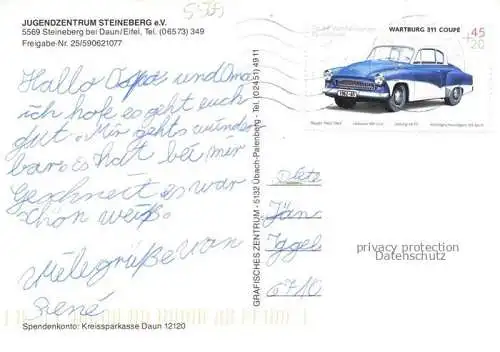 JUGENDZENTRUM STEINEBERG e.V.
5569 Steineberg bei Daun/Eifel, Tel. (06573) 349
Freigabe-Nr. 25/590621077
Hallo Opa und Oma
ich hofe es geht euch
gut. Mir gehts wunder
bar. Es hat bei mir
Geschneit es war
schön weiß.
Viele grüße von
René
Spendenkonto: Kreissparkasse Daun 12120
GRAFISCHES ZENTRUM - 5132 Übach-Palenberg - Tel. (02451) 4911
WARTBURG 311 COUPÉ
+45
20
Dietz
Jän
Iggel
6710
privacy protection
Datenschutz